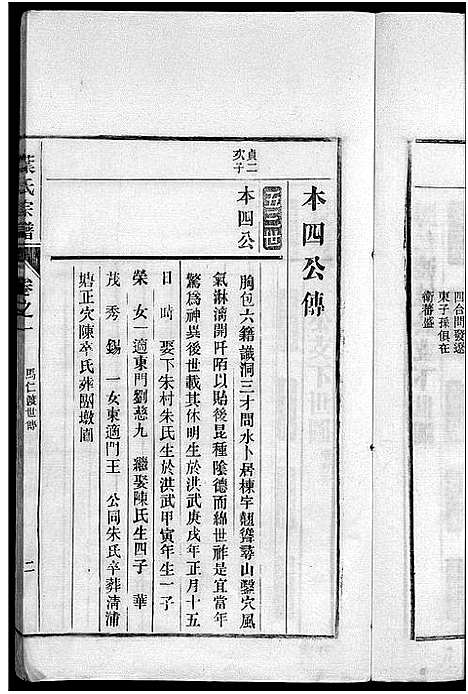 四台問發遼
東子孫俱在
衛蕃盛
本四公傳
貞二
次子
本四公
胸包六籍識洞三才問水卜居棟宇翹聳尋山鑿穴風
氣淋漓開阡陌以貽後昆種陰德而綿世祚是宜當年
驚爲神異後世載其休明生於洪武庚戌年正月十五
日 時 娶下朱村朱氏生於洪武甲寅年生一子
榮 女一適東門劉慈九 繼娶陳氏生四子 華
茂 秀 錫 一女東適門王 公同朱氏卒葬清浦
塘正穴陳卒氏葬團墩圓
葉氏宗譜
卷之一
馬仁渡世傳
二